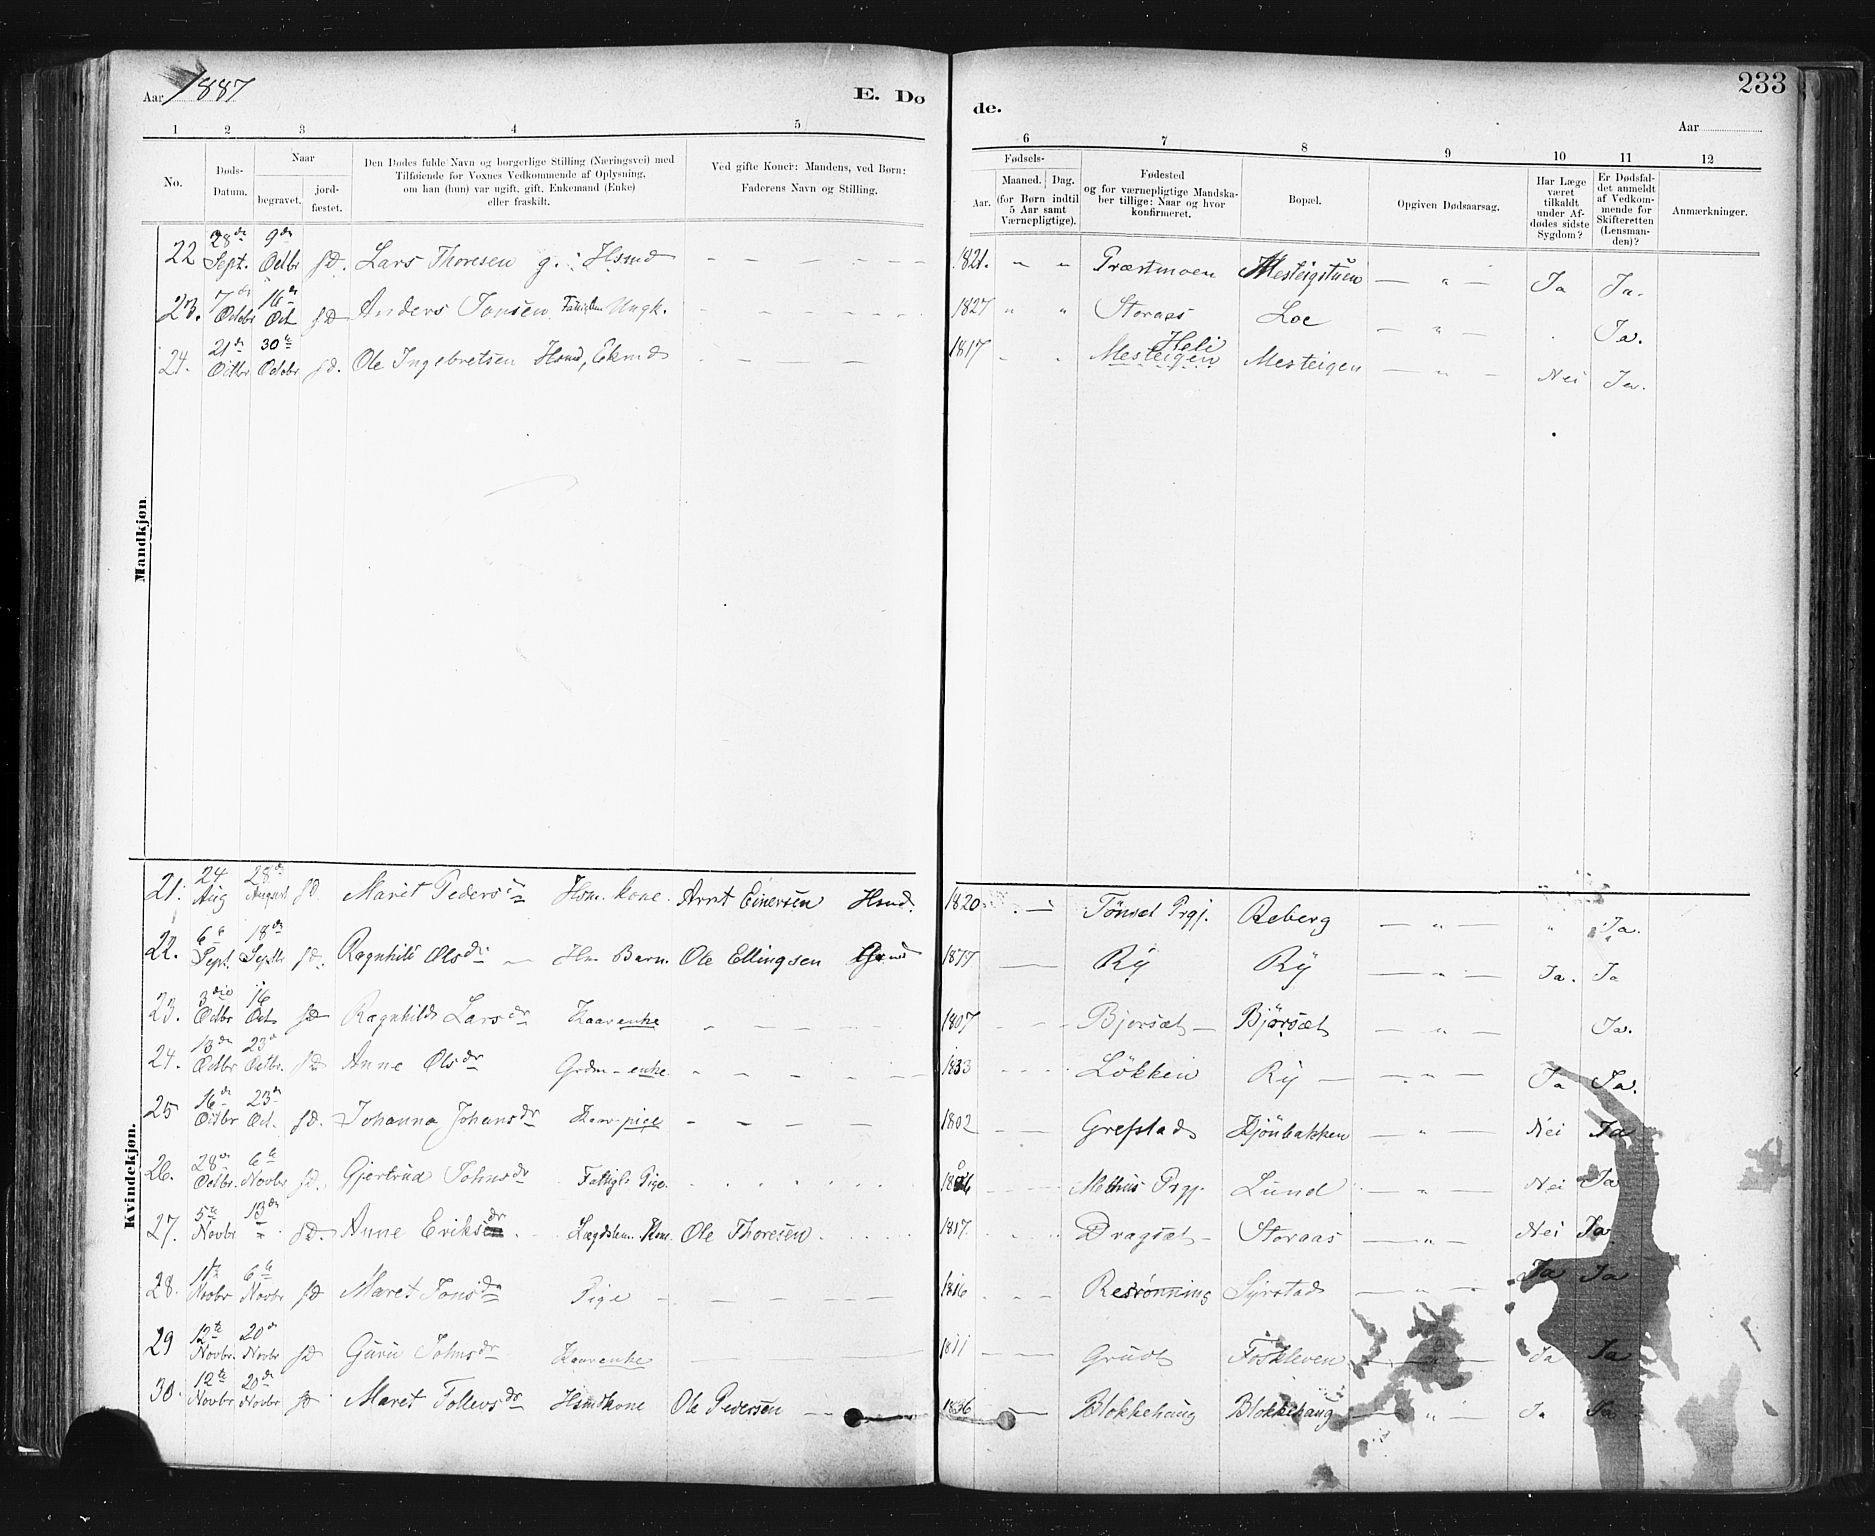 Aar 1887
E. Dø
de.
233
Aar
1 2 3 4 5 6 7 8 9 10 11 12
No.
Døds-Datum.
Naar
begravet.
jord-fæstet.
Den Dødes fulde Navn og borgerlige Stilling (Næringsvei) med
Tilføiende for Voxnes Vedkommende af Oplysning,
om han (hun) var ugift, gift, Enkemand (Enke)
eller fraskilt.
Ved gifte Koner: Mandens, ved Børn:
Faderens Navn og Stilling.
Fødsels-
Aar.
Maaned. Dag.
(for Børn indtil
5 Aar samt
Værnepligtige).
Fødested
og for værnepligtige Mandska-
ber tillige: Naar og hvor
konfirmeret.
Bopæl.
Opgiven Dødsaarsag.
Har Læge
været
tilkaldt
under Af-
dødes sidste
Sygdom?
Er Dødsfal-
det anmeldt
af Vedkom-
mende for
Skifteretten
(Lensman-
den)?
Anmærkninger.
Mandkjøn.
22 28de Sept. 9de Octbr JD. Lars Thoresen g. Hsmd 1821. Præstmoen Mesteigstuen Ja Ja.
23. 7de Octbr 16de Oct JD Anders Jonsen Ungk. 1827 Storaas Loe Ja.
24. 21de Octbr 30te Octobr JD. Ole Ingebretsen Hsmd, Ekmd 1817 Mesteigen Heli Mesteigen Nei Ja.
Kvindekjøn.
21. 24 Aug 28de August JD Marit Pedersdr Hsm. kone. Arnt Einersen Hsmd. 1820 Tönset Prgj. Aeberg Ja.
22. 6te Sept. 18de Septbr JD. Ragnhild Olsdr Hsm Barn. Ole Ellingsen 1877 Rÿ Rÿ Ja. Ja
23. 3die Octbr 16 Oct JD Ragnhild Larsdr Kaarenke 1807 Bjorsæt Björsæt Ja.
24. 13de Octbr 23de Octbr. JD Anne Olsdr Grdm-enke 1833 Lökken Rÿ Ja Ja.
25 16de Octbr 23de Oct. JD. Johanna Johansdr Kaar-pige 1802 Grefstad Nei Ja
26. 28de Octbr. 6te Novbr JD. Gjertrud Johnsdr Fattigl. Pige Melhus Prgj. Lund Nei Ja
27. 5te Novbr 13de JD. Anne Eriksdr Lægdslem. Kone. Ole Thoresen 1817. Dragsæt Storaas Nei Ja.
28. 1te Novbr 6te Novbr JD Maret Jonsdr Pige 1816 Resrønning Syrstad Ja Ja
29 12te Novbr. 20de Novbr JD Guru Johnsdr Kaarenke 1811 Grudt Foskleven Ja Ja
30. 12te Novbr 20de Novbr JD Maret Tollevsdr Hsmdkone Ole Pedersen 1836 Blokkehaug Blokkehaug Ja Ja